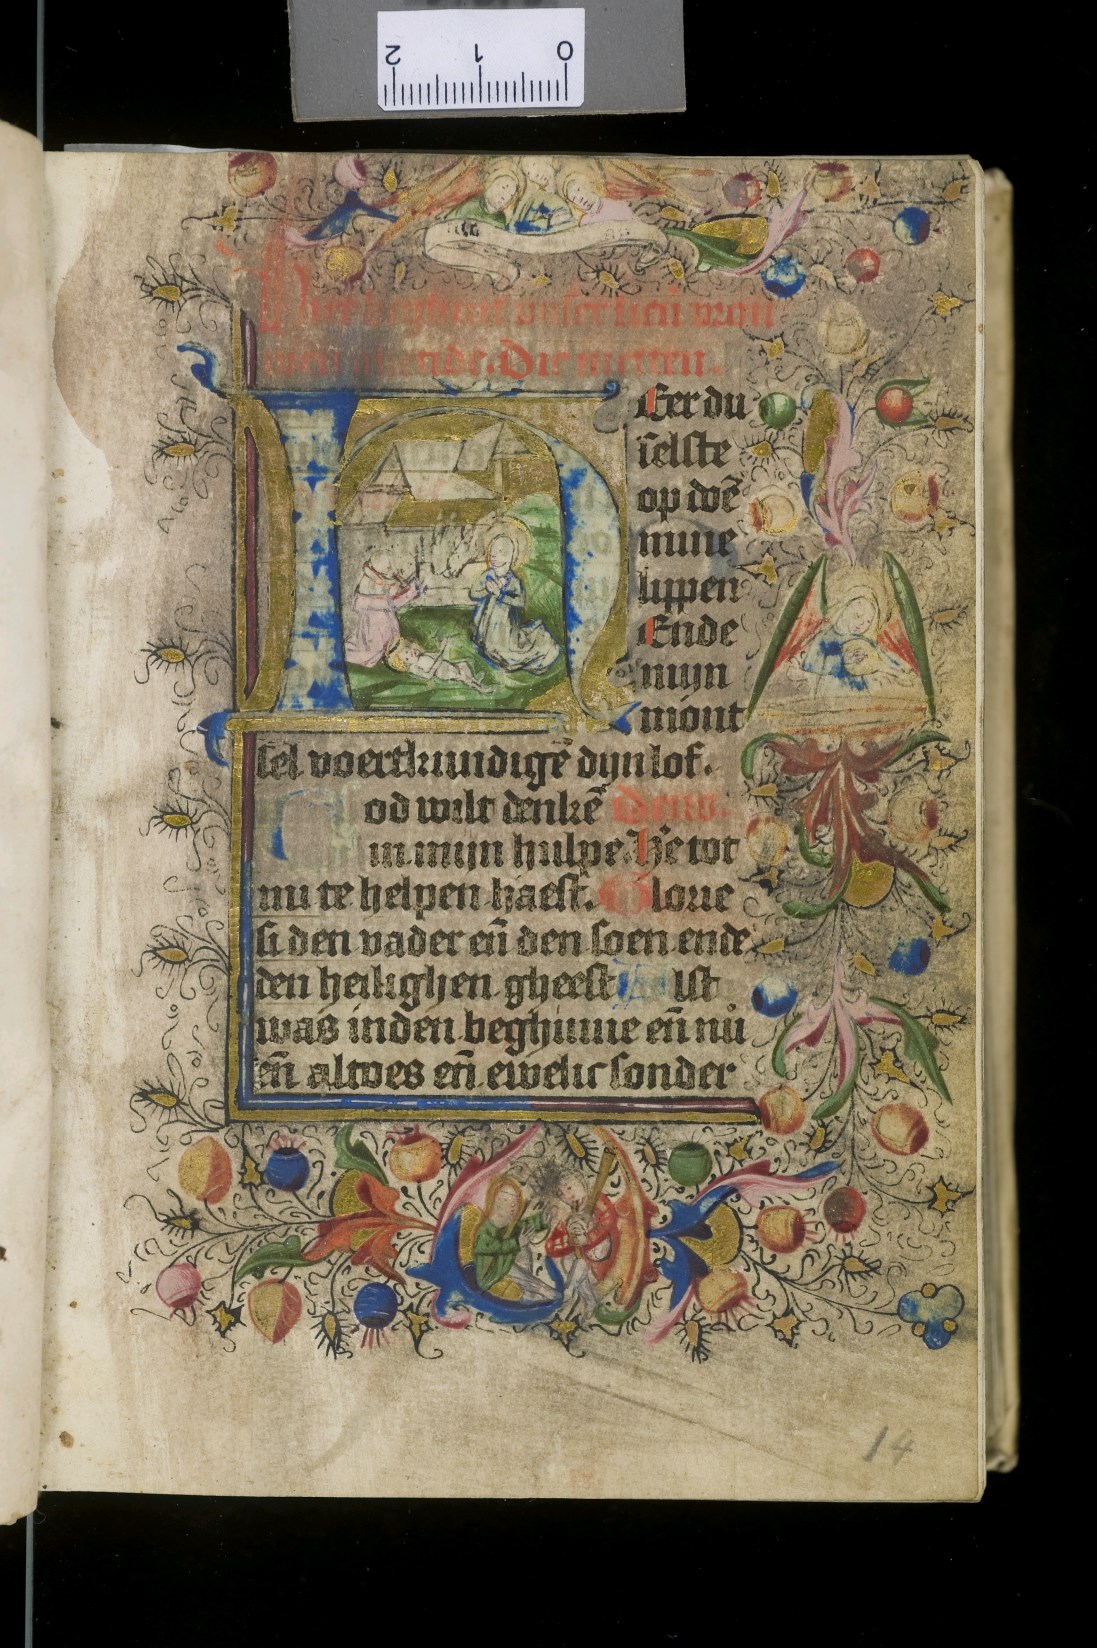 2 1 0
Hier beghint onser lieu vrou
wen ghetide. Die metten.
HEer du
selste
op doē
mine
lippen
Ende
mijn
mont
sel voertkundigē dijn lof.
God wilt denkē Deus.
in mijn hulpe. He tot
mi te helpen haest. Glorie
si den vader eñ den soen ende
den heilighen gheest Alst
was inden beghinne eñ nu
eñ altoes eñ ewelic sonder
14